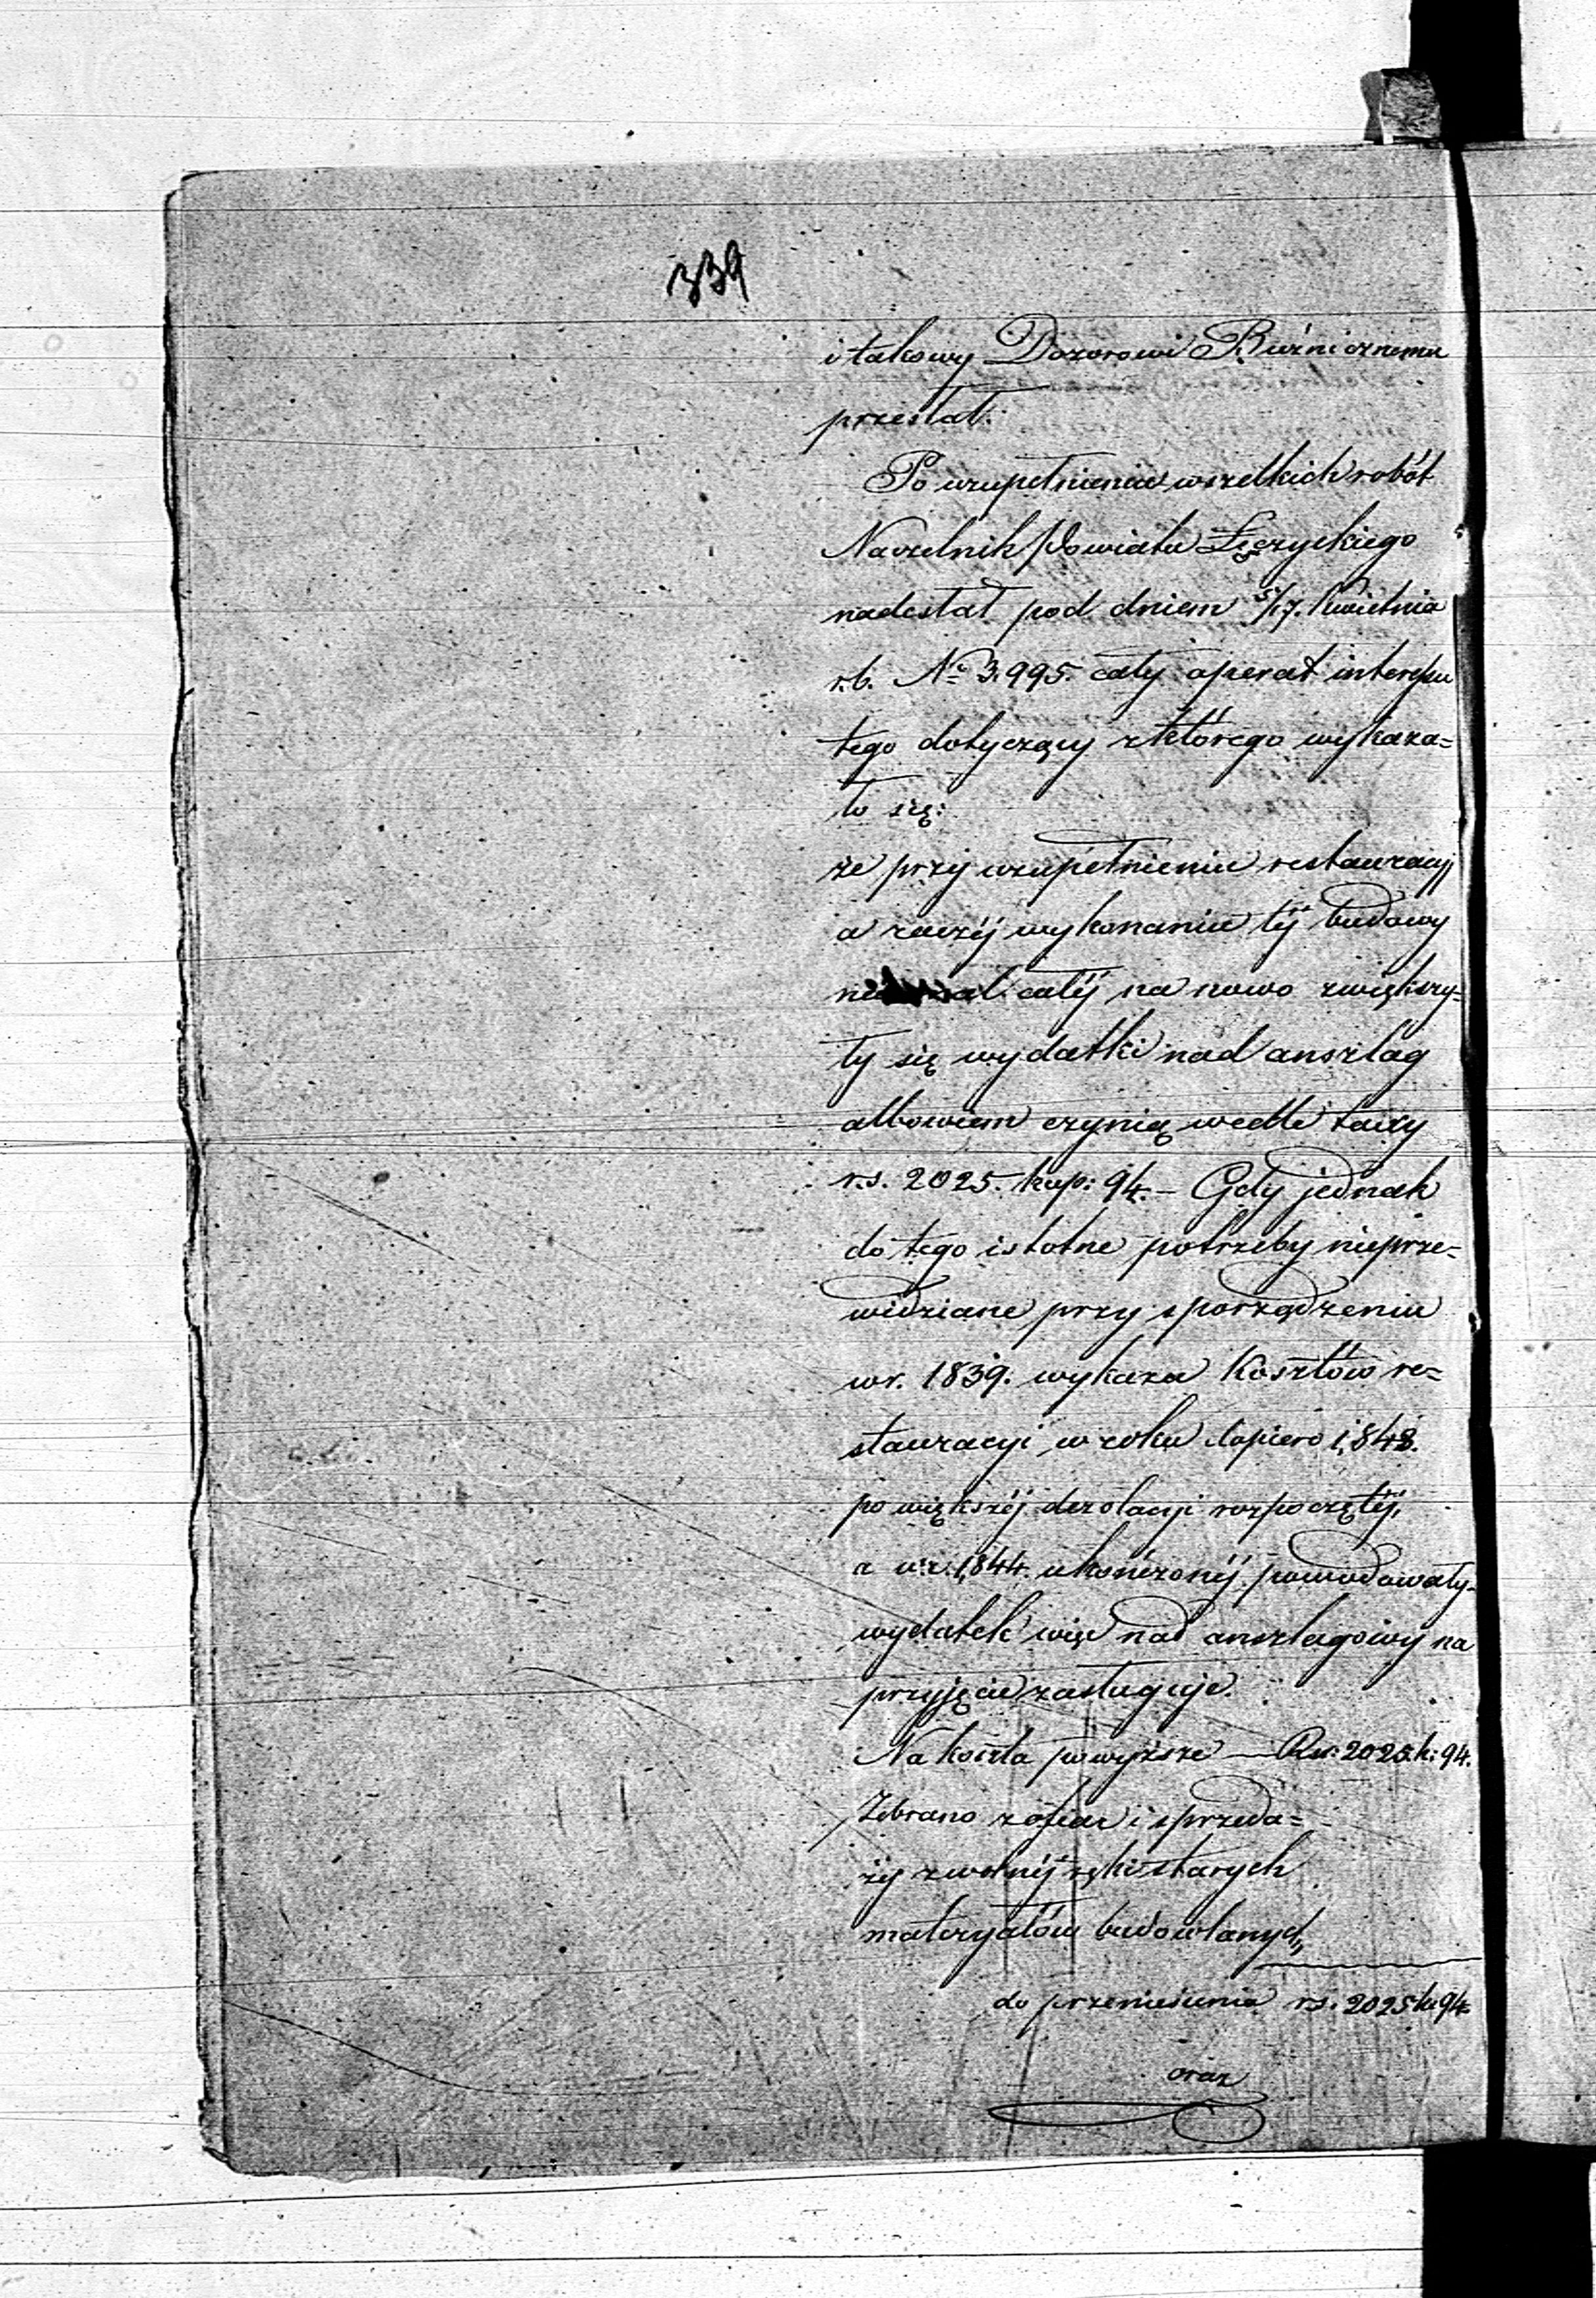 339
i takowy Dozorowi Bużnicznemu
przesłał.
Po uzupełnieniu wszelkich robót
Naczelnik Powiatu Łęczyckiego
nadesłał pod dniem 5/17. Kwietnia
r.b. No 3.995. cały operat interesu
tego dotyczący z którego wykaza=
ło się:
że przy uzupełnieniu restauracyi
a raczéj wykonaniu téj budowy
całéj na nowo zwiększy=
ły się wydatki nad anszlag
albowiem czynią wedle taxy
r.s. 2025. kop: 94. – Gdy jednak
do tego istotne potrzeby nieprze=
widziane przy sporządzeniu
w r. 1839. wykaza kosztów re=
stauracyi w roku dopiero 1,843.
po większéj dezolacyi rozpoczętéj,
a w r. 1,844. ukończonéj powodowały
wydatek więc nad anszlagowy na
przyjęcie zasługuje.
Na koszta powyższe — Rs: 2025. k: 94.
Zebrano z ofiar i sprzeda=
ży z wolnéj ręki starych
materyałów budowlanych,
do przeniesienia rs. 2025 k. 94
oraz